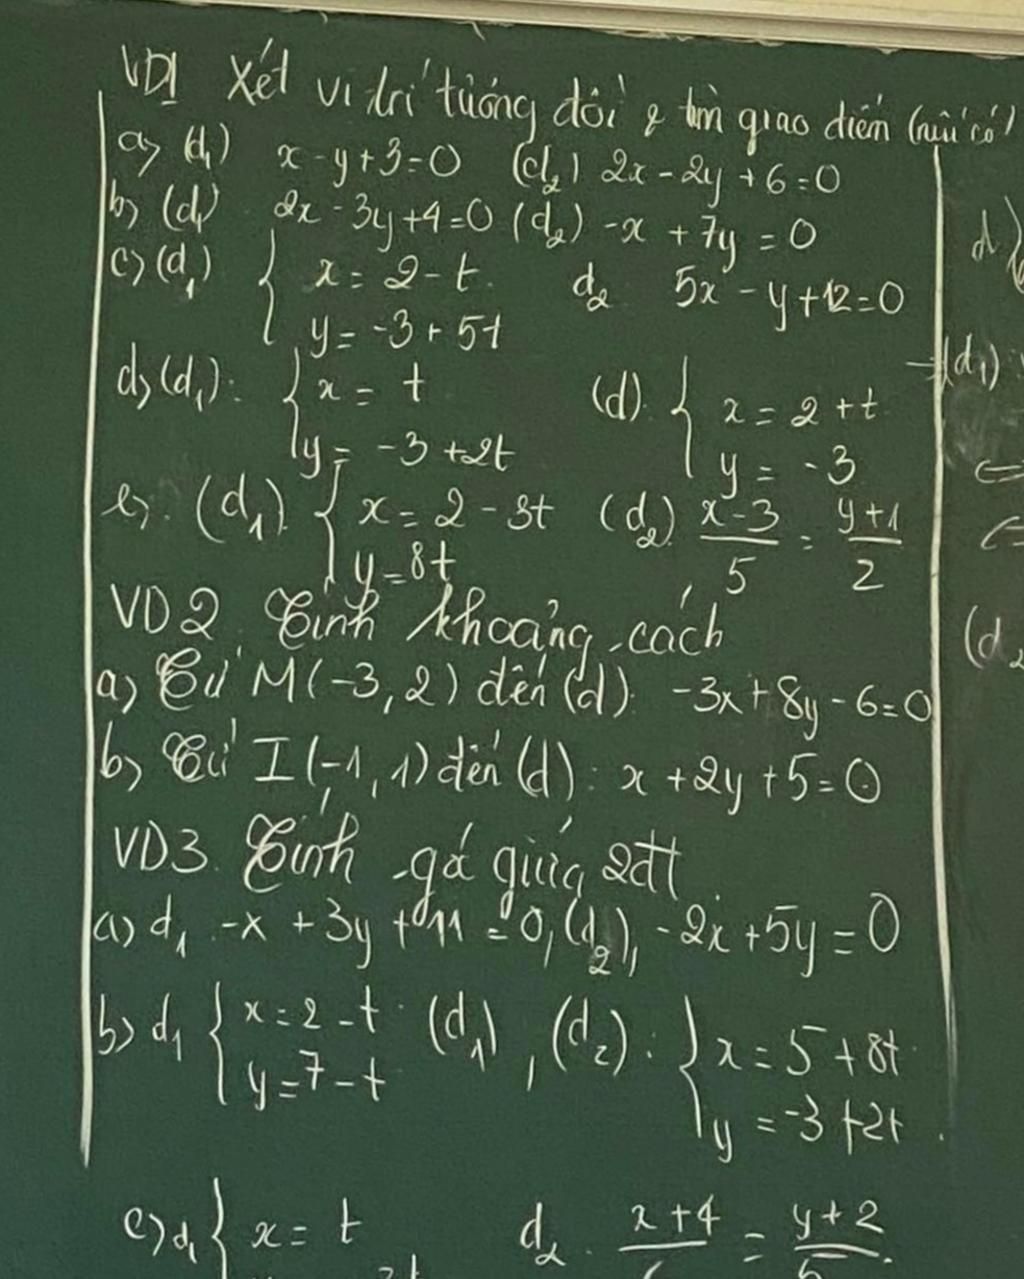 VD1 Xét vị trí tương đối & tìm giao điểm (nếu có)
a) (d₁) x - y + 3 = 0 (d₂) 2x - 2y + 6 = 0
b) (d₁) 2x - 3y + 4 = 0 (d₂) -x + 7y = 0
c) (d₁) { x = 2 - t d₂ 5x - y + 12 = 0
y = -3 + 5t
d) (d₁): { x = t (d) { x = 2 + t
y = -3 + 2t y = -3
e) (d₁) { x = 2 - 3t (d₂) x-3/5 = y+1/2
y = 8t
VD2 Tính khoảng cách
a) Từ M(-3, 2) đến (d) -3x + 8y - 6 = 0
b) Từ I(-1, 1) đến (d): x + 2y + 5 = 0
VD3. Tính góc giữa 2đt
a) d₁ -x + 3y + 11 = 0, (d₂), -2x + 5y = 0
b) d₁ { x = 2 - t (d₁), (d₂): { x = 5 + 8t
y = 7 - t y = -3 + 2t
c) d₁ { x = t d₂ x+4 = y+2
(d₁)